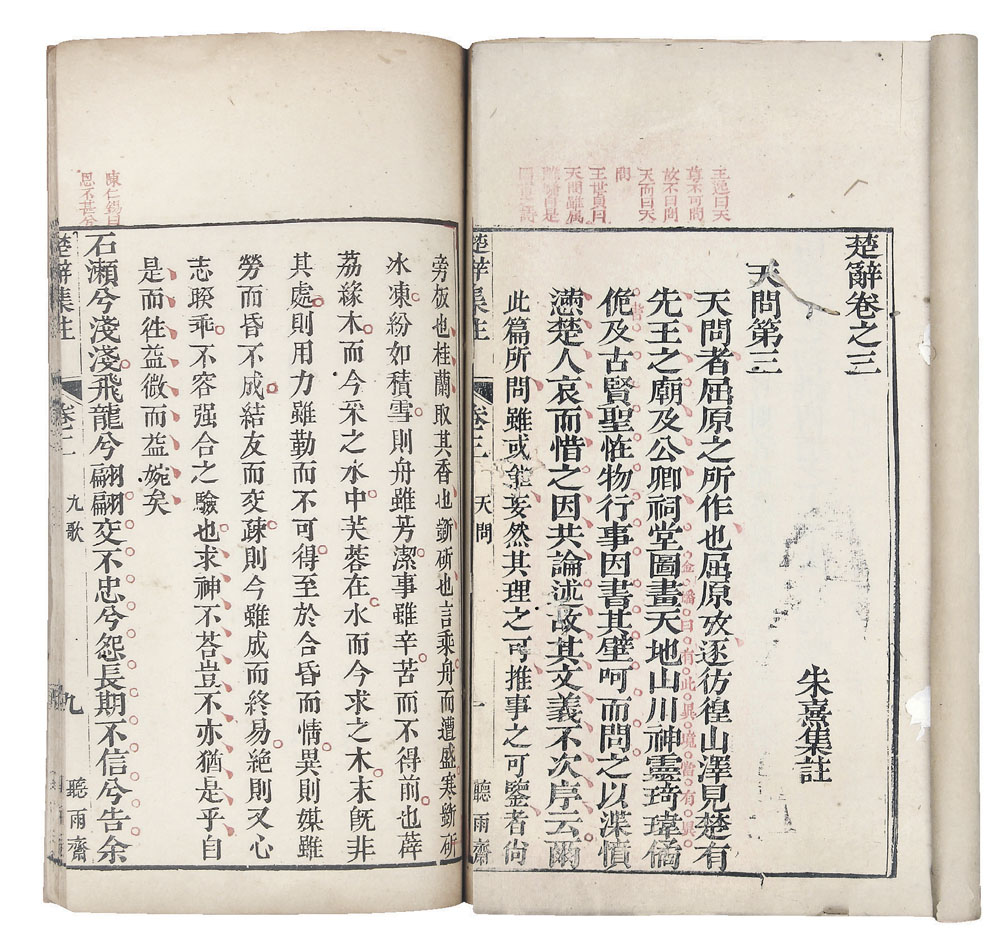 王逸曰天
尊不可問
故不曰問
天而曰天
問
王世貞曰
天問雖屬
楚辭卷之三
朱熹集註
天問第三
天問者屈原之所作也屈原放逐彷徨山澤見楚有
金蟠曰有此異境當有異
先王之廟及公卿祠堂圖畫天地山川神靈琦瑋僑
佹及古賢聖恠物行事因書其壁呵而問之以渫憤
懣楚人哀而惜之因共論述故其文義不次序云爾
此篇所問雖或妄然其理之可推事之可鑒者尚
楚辭集註 卷三 天問 一 聽雨齋
陳仁錫曰
旁板也桂蘭取其香也斲斫也言乘舟而遭盛寒斲斫
冰凍紛如積雪則舟雖芳潔事雖辛苦而不得前也薜
荔緣木而今采之水中芙蓉在水而今求之木末旣非
其處則用力雖勤而不可得至於合昏而情異則媒雖
勞而昏不成結友而交疎則今雖成而終易絕則又心
志睽乖不容强合之驗也求神不荅豈不亦猶是乎自
是而徃益微而益婉矣
石瀨兮淺淺飛龍兮翩翩交不忠兮怨長期不信兮告余
楚辭集註 卷二 九歌 九 聽雨齋